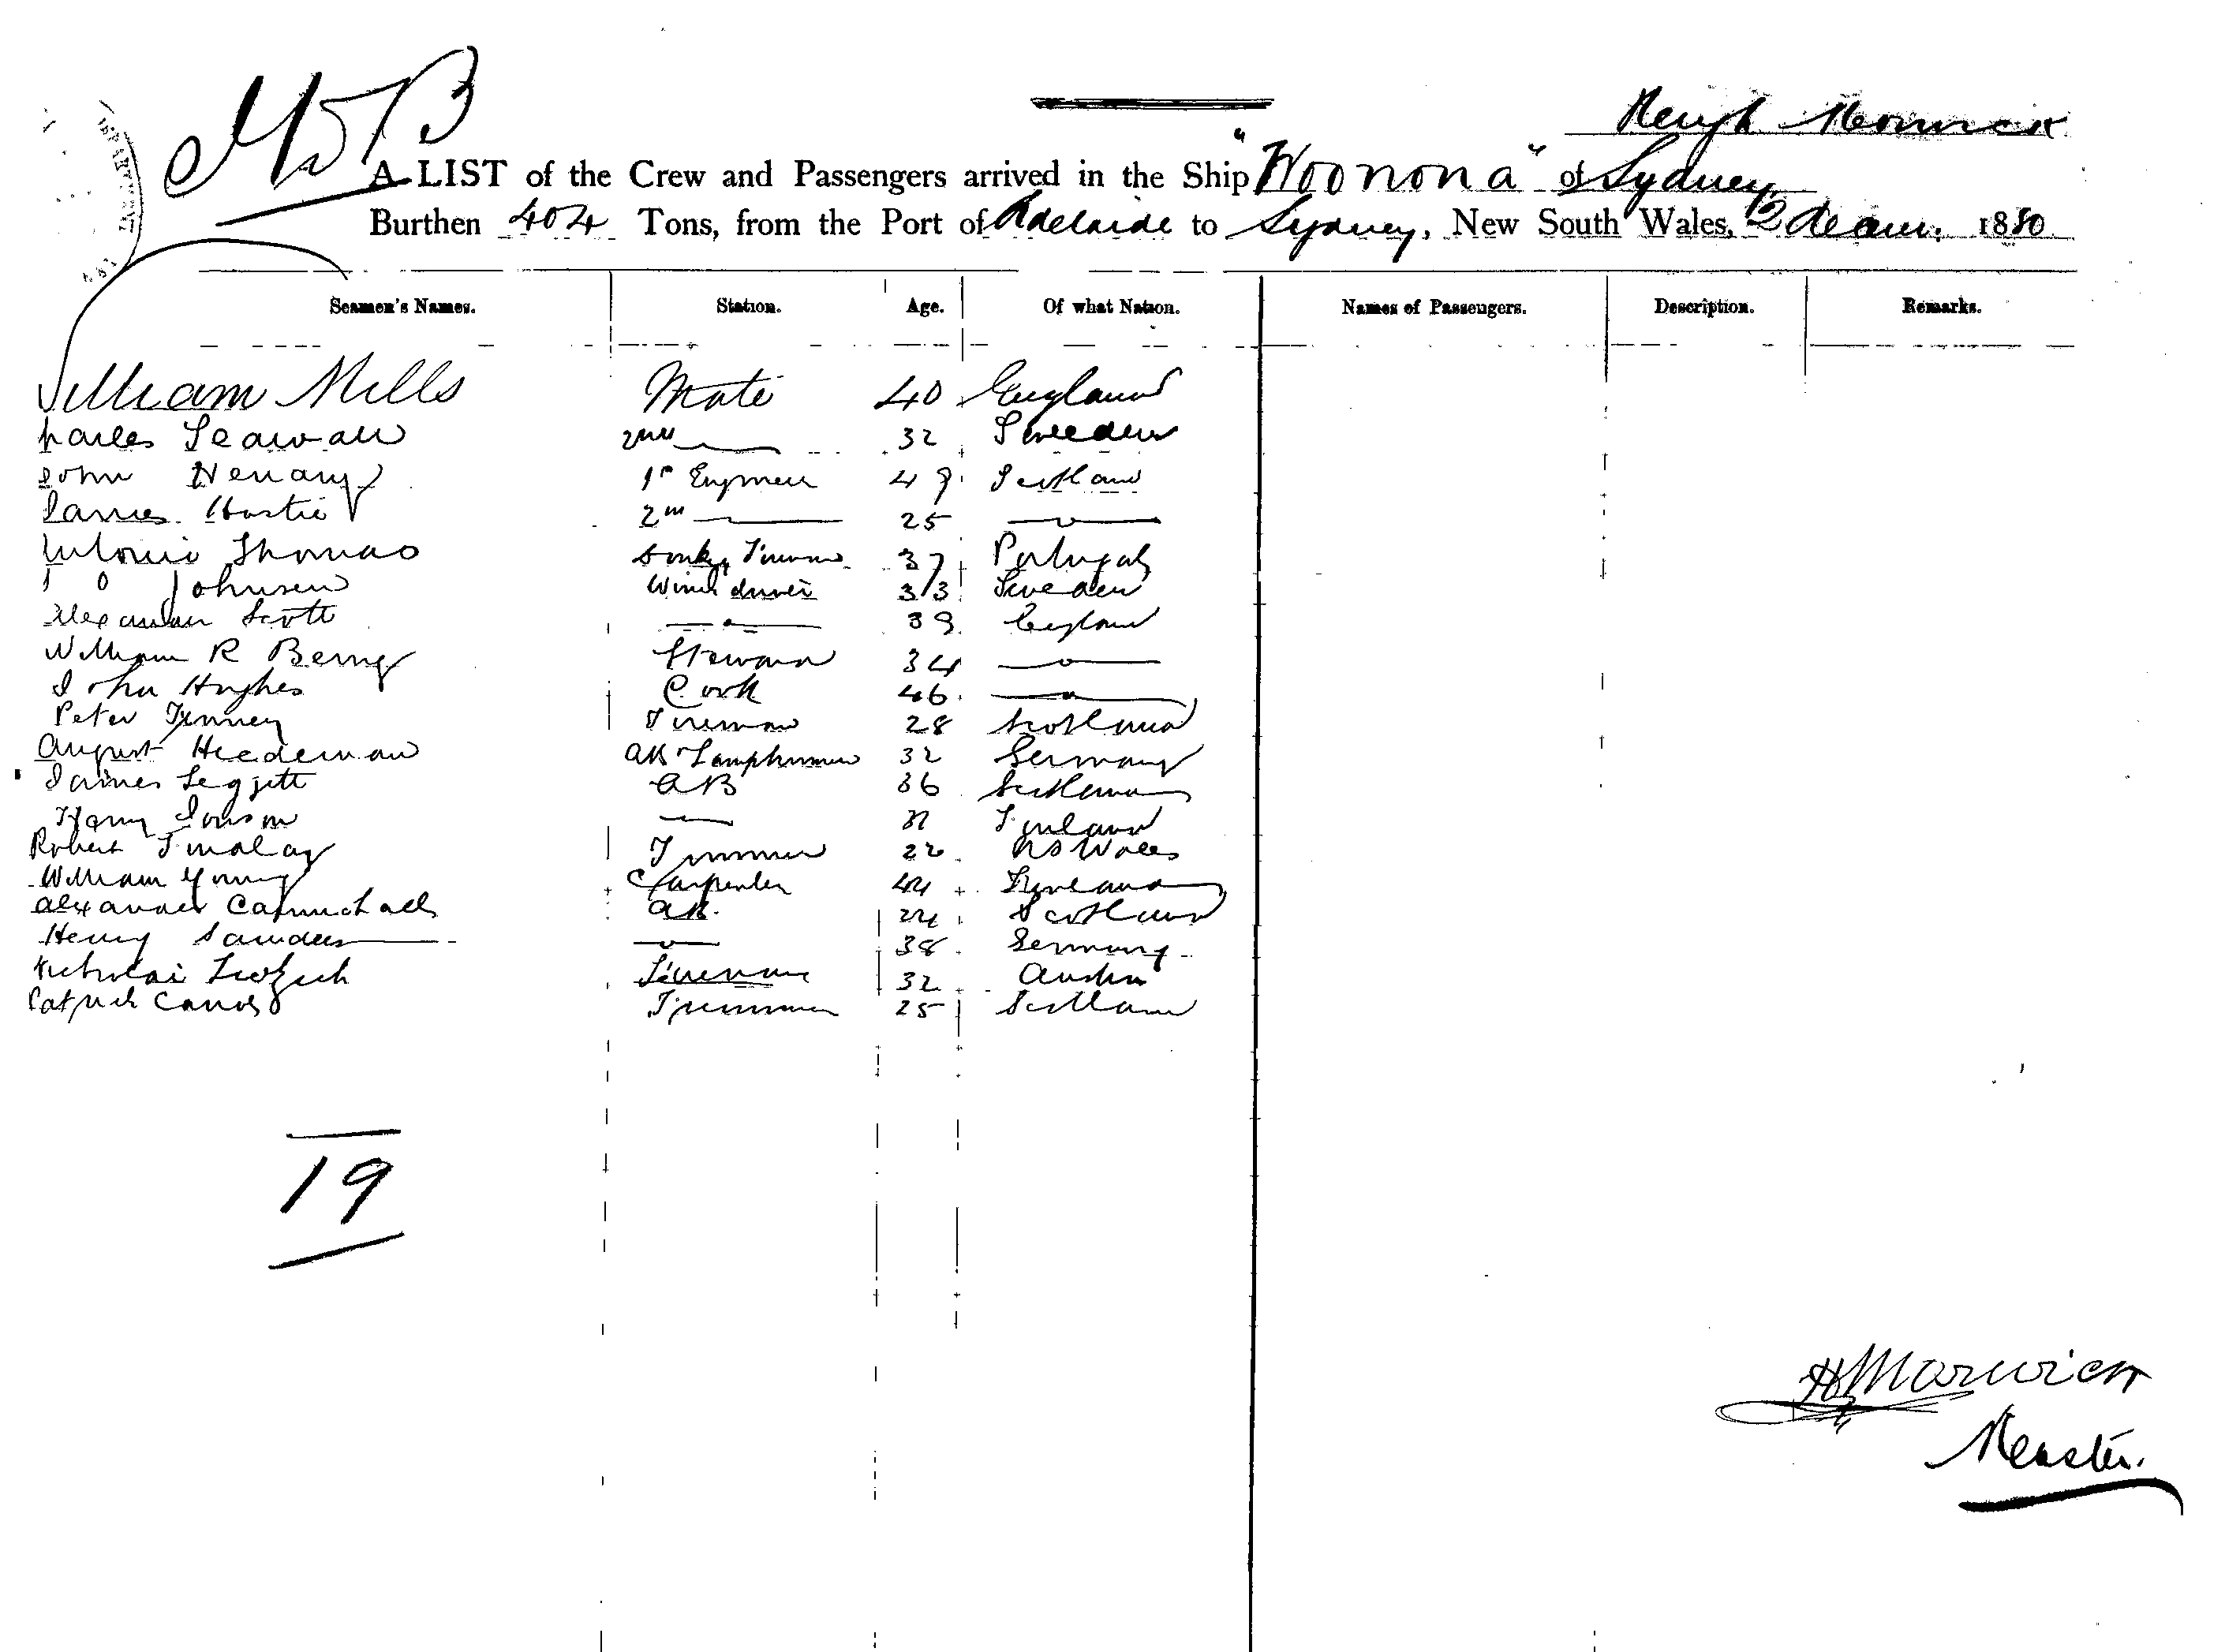 Hugh Morwick
A LIST of the Crew and Passengers arrived in the Ship "Woonona" of Sydney
Burthen 404 Tons, from the Port of Adelaide to Sydney, New South Wales, 1880
Seamen's Names. Station. Age. Of what Nation. Names of Passengers. Description. Remarks.
William Mills Mate 40 England
Charles 2nd — 32 Sweeden
John 1st Engineer 49 Scotland
James Hastie 2nd — 25 — " —
Antonio Thomas Donky Fireman 37 Portugal
Johnson Winch driver 33 Sweden
Alexander Scott — " — 39 England
William R Berry Steward 34 — " —
John Hughes Cook 46 — " —
Peter Fireman 28 Scotland
August Hiedeman AB & Lamptrimmer 32 Germany
James Leggett AB 36 Scotland
Harry — Finland
Robert Finalay Trimmer 22 N S Wales
William Young Carpenter 44
Alexander Carmichael AB 24 Scotland
Henry Saunders — " — 38 Germany
Nicholai Fireman 32 Austria
Patrick Trimmer 25 Scotland
19
H Marwick
Master.